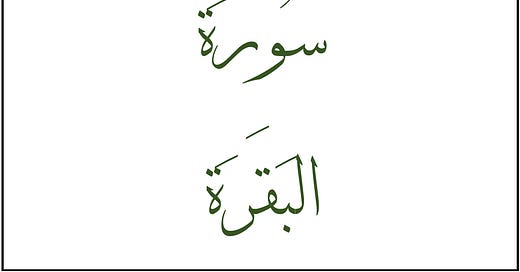 سورة
البَقَرَة